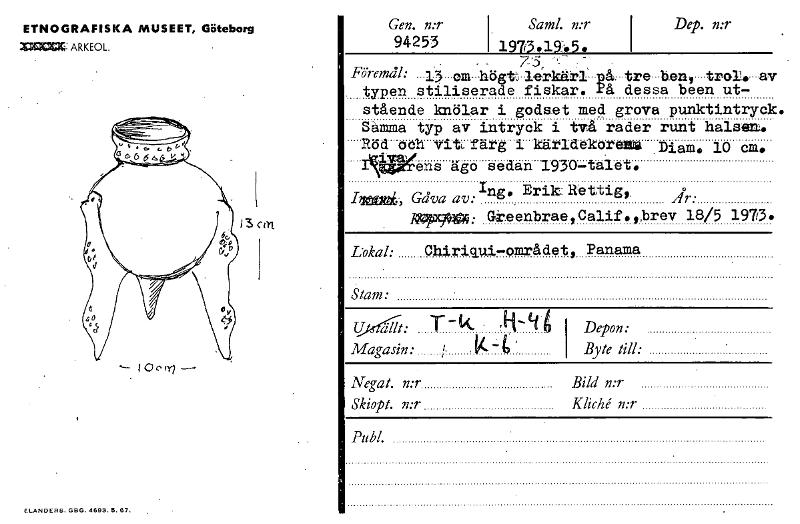 ETNOGRAFISKA MUSEET, Göteborg
ARKEOL.
13 cm
— 10 cm —
ELANDERS. GBG. 4693. 5. 67.
Gen. n:r Saml. n:r Dep. n:r
94253 1973.19.5.
73,
Föremål: 13 cm högt lerkärl på tre ben, trol. av
typen stiliserade fiskar. På dessa been ut-
stående knölar i godset med grova punktintryck.
Samma typ av intryck i två rader runt halsen.
Röd och vit färg i kärldekoren. Diam. 10 cm.
giva
rens ägo sedan 1930-talet.
Gåva av: Ing. Erik Rettig, År:
Greenbrae,Calif.,brev 18/5 1973.
Lokal: Chiriqui-området, Panama
Stam:
Utställt: T-K H-46 Depon:
Magasin: K-6 Byte till:
Negat. n:r Bild n:r
Skiopt. n:r Kliché n:r
Publ.